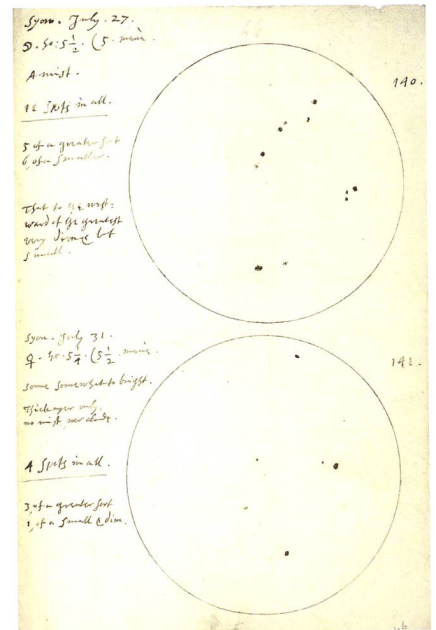 Syon. July. 27.
☽. ho: 5 1/2. (5.
A mist.
140.
Spots in all.
5 of a greater sort
6, of a smaller.
That to the west=
ward of the greatest
very dimme but
small.
Syon. July 31.
♀. ho. 5 1/4. (5 1/2.
141.
some somewhat to bright.
Thick ayer only.
no mist, nor clouds.
4 Spots in all.
3, of a greater sort
1, of a small & dim.